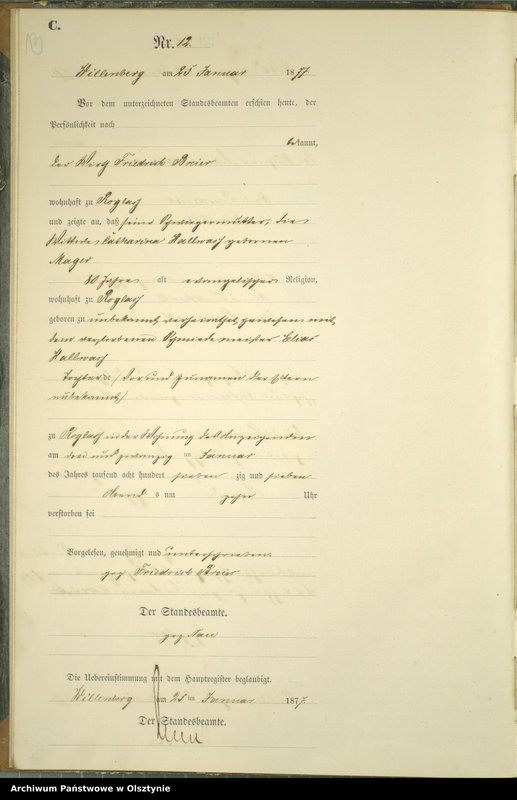 C.
13
Nr. 12.
Willenberg am 25 Januar 1877
Vor dem unterzeichneten Standesbeamten erschien heute, der
Persönlichkeit nach
bekannt,
der Wirth Friedrich Breier
wohnhaft zu Roglack
und zeigte an, daß seine Schwiegermutter, die
Wittwe Catharina Hallwach geborenen
Mager
80 Jahre alt evangelischer Religion,
wohnhaft zu Roglack
geboren zu unbekannt, verheirathet gewesen mit
dem verstorbenen Schmiedemeister Elias
Hallwach
Tochter de / Vor und Zunamen der Eltern
unbekannt /
zu Roglack in der Wohnung des Anzeigenden
am drei und zwanzig ten Januar
des Jahres tausend acht hundert sieben zig und sieben
Abend s um zehn Uhr
verstorben sei
Vorgelesen, genehmigt und unterschrieben.
gez Friedrich Breier
Der Standesbeamte.
gez
Die Uebereinstimmung mit dem Hauptregister beglaubigt.
Willenberg am 25 ten Januar 1877.
Der Standesbeamte.
Archiwum Państwowe w Olsztynie